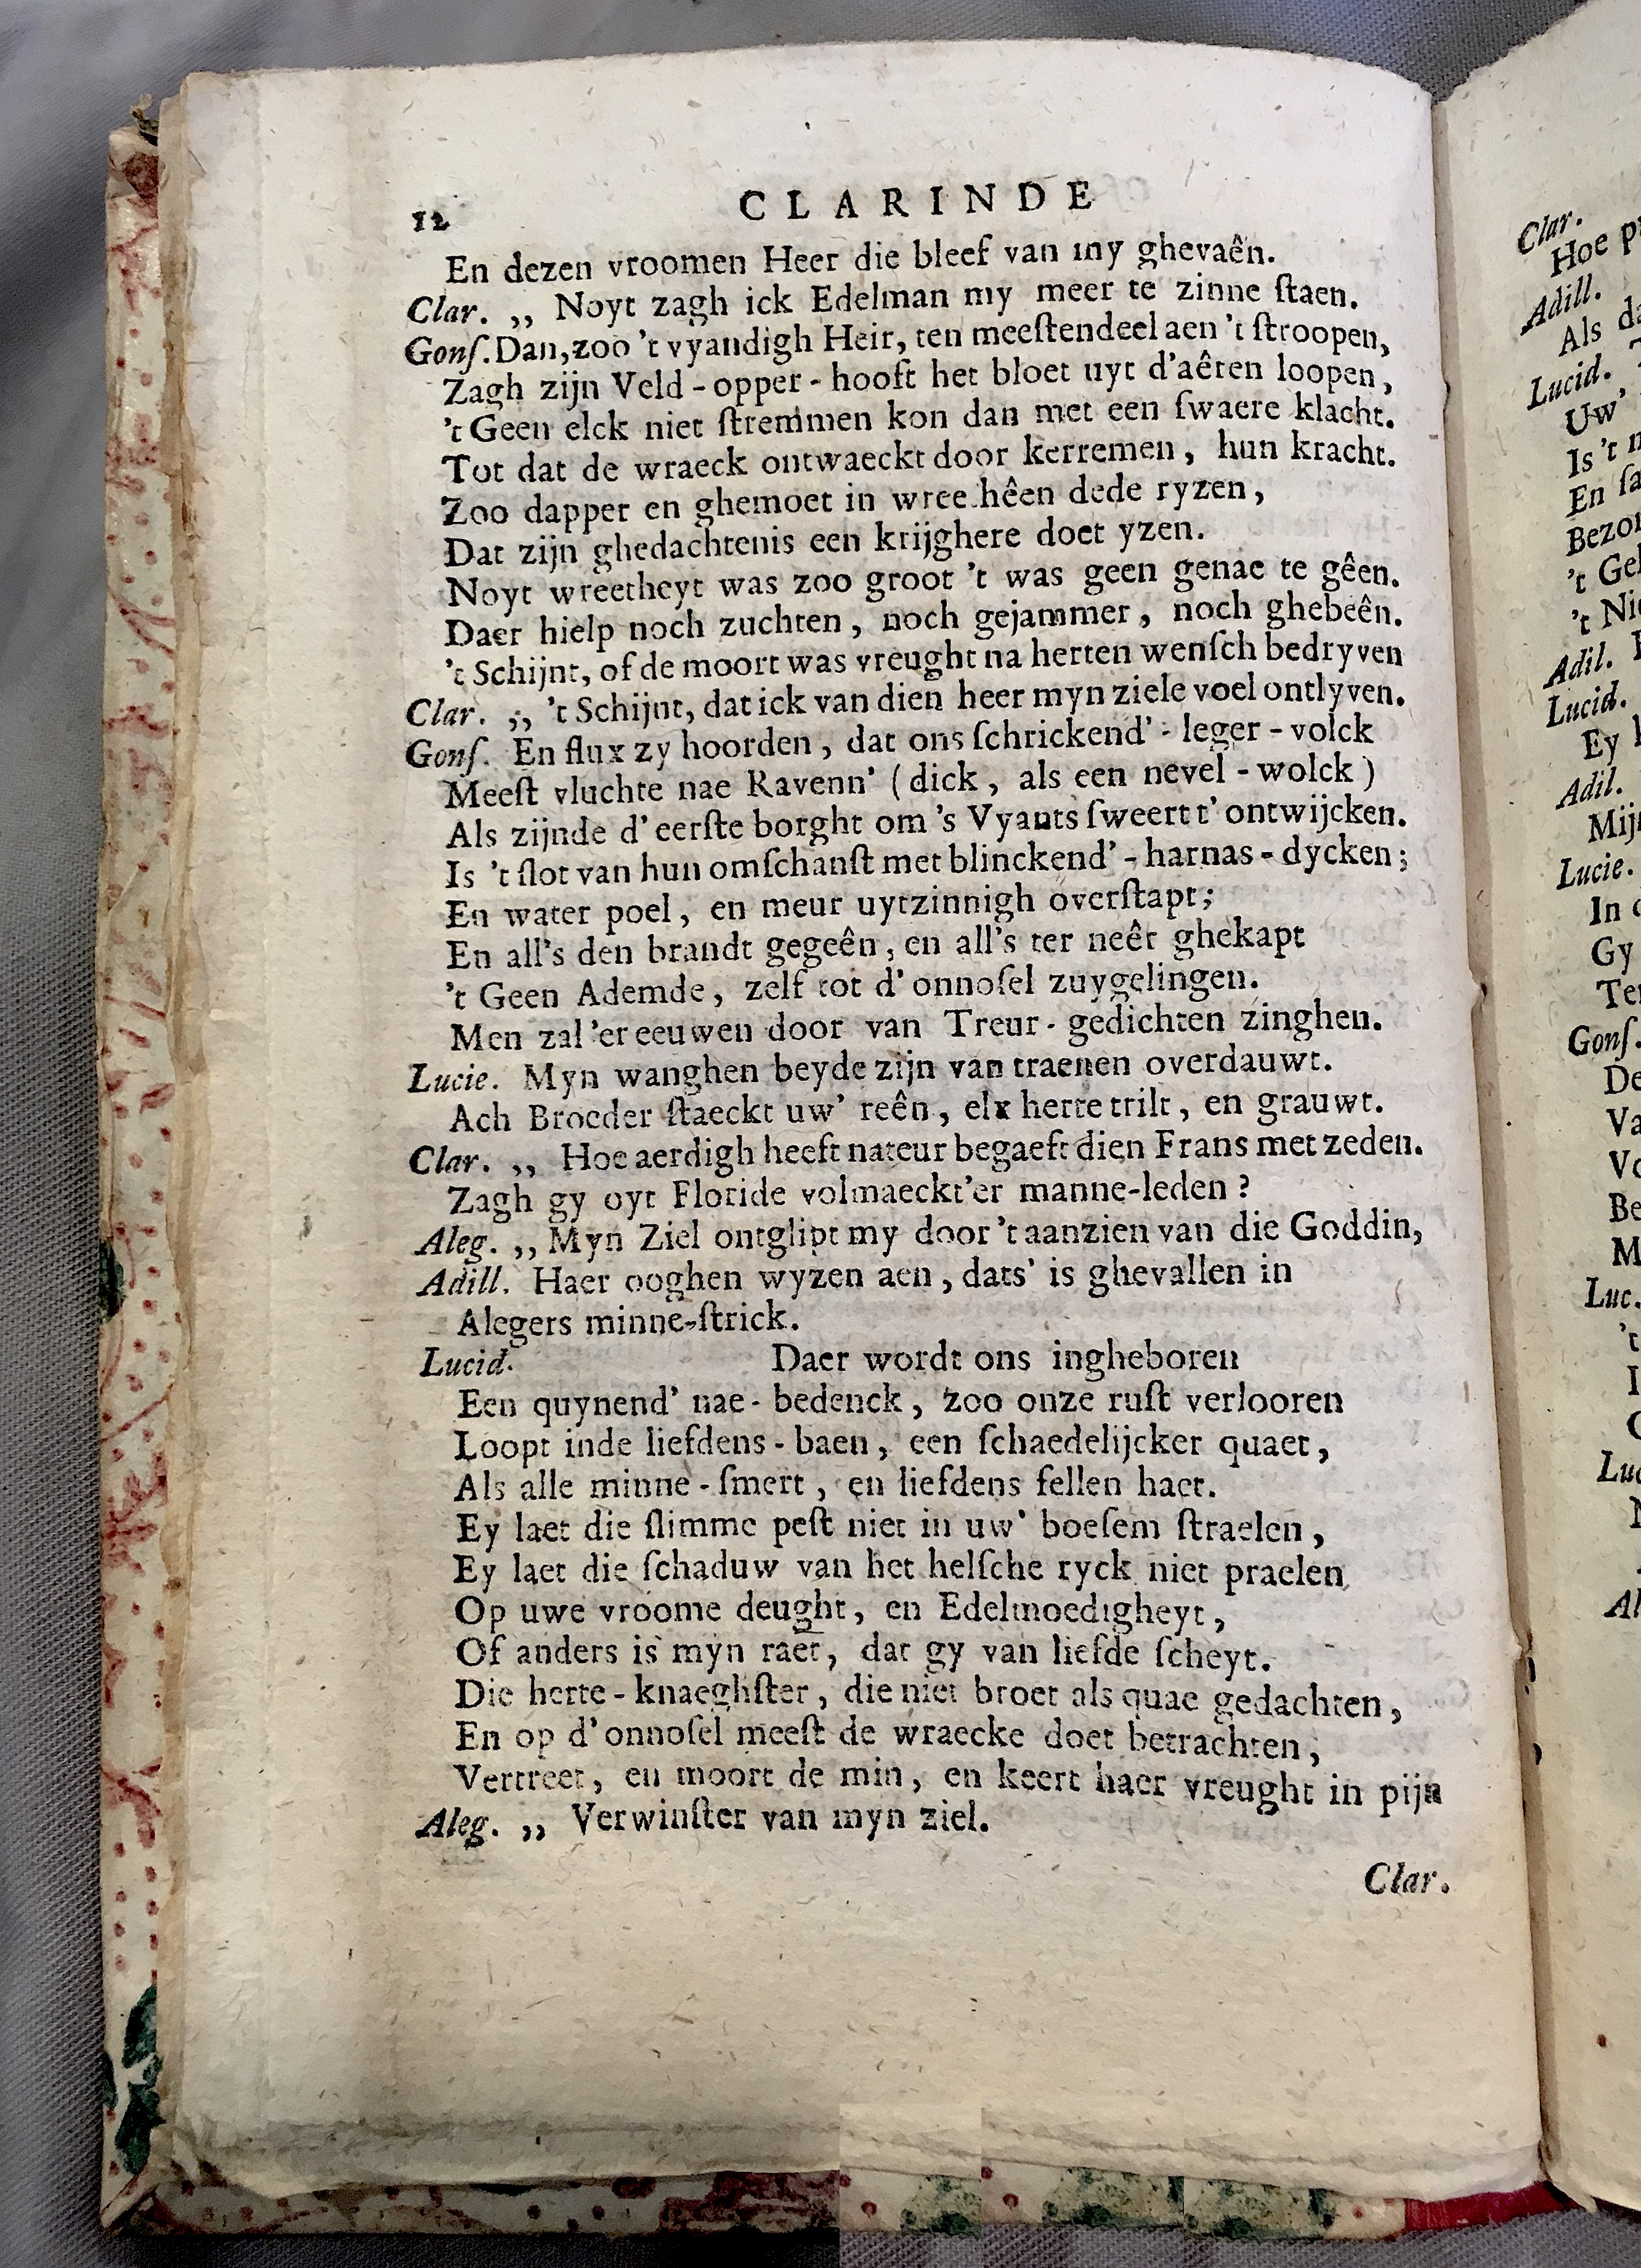 12 CLARINDE
En dezen vroomen Heer die bleef van my ghevaên.
Clar. ,, Noyt zagh ick Edelman my meer te zinne ſtaen.
Gonſ. Dan, zoo 't vyandigh Heir, ten meeſtendeel aen 't ſtroopen,
Zagh zijn Veld-opper-hooft het bloet uyt d'aêren loopen,
't Geen elck niet ſtremmen kon dan met een ſwaere klacht.
Tot dat de wraeck ontwaeckt door kerremen, hun kracht.
Zoo dapper en ghemoet in wree hêen dede ryzen,
Dat zijn ghedachtenis een krijghere doet yzen.
Noyt wreetheyt was zoo groot 't was geen genae te gêen.
Daer hielp noch zuchten, noch gejammer, noch ghebeên.
't Schijnt, of de moort was vreught na herten wenſch bedryven
Clar. ,, 't Schijnt, dat ick van dien heer myn ziele voel ontlyven.
Gonſ. En flux zy hoorden, dat ons ſchrickend'-leger-volck
Meeſt vluchte nae Ravenn' (dick, als een nevel-wolck)
Als zijnde d'eerſte borght om 's Vyants ſweert t'ontwijcken.
Is 't ſlot van hun omſchanſt met blinckend'-harnas-dycken;
En water poel, en meur uytzinnigh overſtapt;
En all's den brandt gegeên, en all's ter neêr ghekapt
't Geen Ademde, zelf tot d'onnoſel zuygelingen.
Men zal 'er eeuwen door van Treur-gedichten zinghen.
Lucie. Myn wanghen beyde zijn van traenen overdauwt.
Ach Broeder ſtaeckt uw' reên, elx herte trilt, en grauwt.
Clar. ,, Hoe aerdigh heeft nateur begaeft dien Frans met zeden.
Zagh gy oyt Floride volmaeckt'er manne-leden?
Aleg. ,, Myn Ziel ontglipt my door 't aanzien van die Goddin,
Adill. Haer ooghen wyzen aen, dats' is ghevallen in
Alegers minne-ſtrick.
Lucid. Daer wordt ons ingheboren
Een quynend' nae-bedenck, zoo onze ruſt verlooren
Loopt inde liefdens-baen, een ſchaedelijcker quaet,
Als alle minne-ſmert, en liefdens fellen haet.
Ey laet die ſlimme peſt niet in uw' boeſem ſtraelen,
Ey laet die ſchaduw van het helſche ryck niet praelen
Op uwe vroome deught, en Edelmoedigheyt,
Of anders is myn raet, dat gy van liefde ſcheyt.
Die herte-knaeghſter, die niet broet als quae gedachten,
En op d'onnoſel meeſt de wraecke doet betrachten,
Vertreet, en moort de min, en keert haer vreught in pijn
Aleg. ,, Verwinſter van myn ziel.
Clar.
Clar.
Hoe
Adill.
Als
Lucid.
Uw'
Is 't
En
't
't
Adil.
Lucid.
Ey
Adil.
Lucie.
In
Gy
Gonſ.
De
Luc.
't